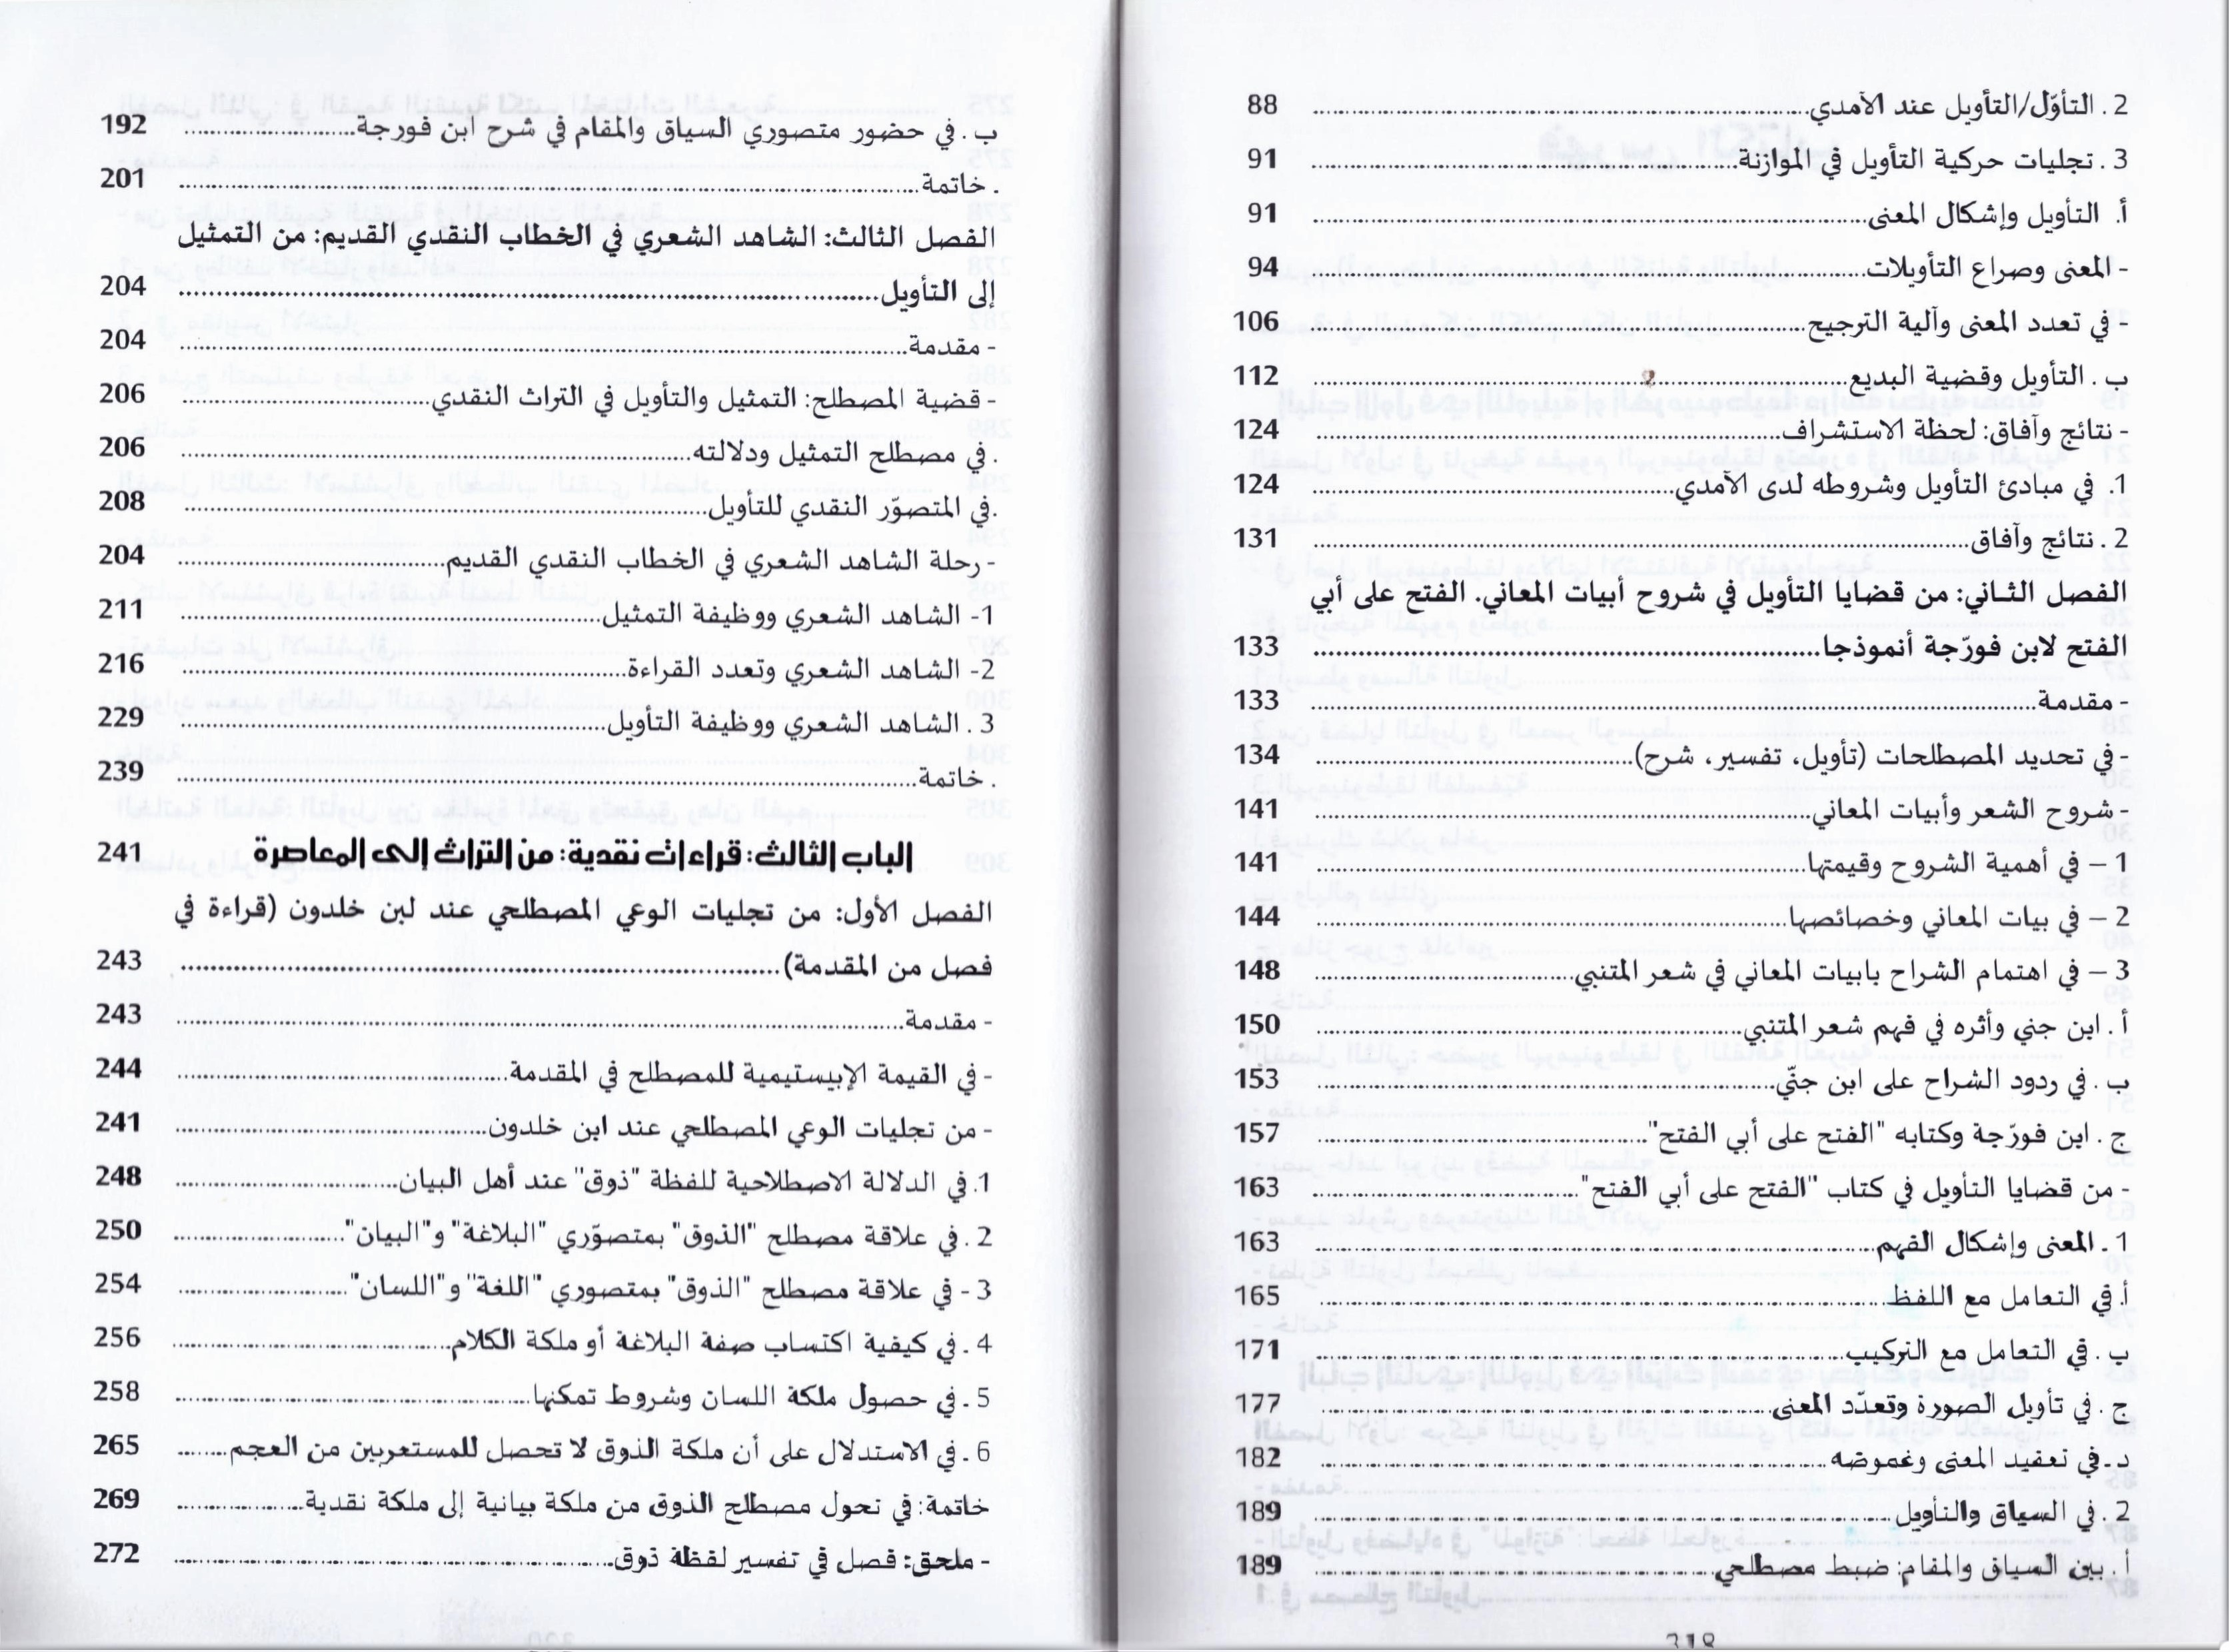 2 . التأوّل/التأويل عند الآمدي ........ 88
3 . تجليات حركية التأويل في الموازنة ........ 91
أ. التأويل وإشكال المعنى ........ 91
- المعنى وصراع التأويلات ........ 94
- في تعدد المعنى وآلية الترجيح ........ 106
ب . التأويل وقضية البديع ........ 112
- نتائج وآفاق: لحظة الاستشراف ........ 124
1. في مبادئ التأويل وشروطه لدى الآمدي ........ 124
2 . نتائج وآفاق ........ 131
الفصل الثاني: من قضايا التأويل في شروح أبيات المعاني. الفتح على أبي
الفتح لابن فورّجة أنموذجا ........ 133
- مقدمة ........ 133
- في تحديد المصطلحات (تأويل، تفسير، شرح) ........ 134
- شروح الشعر وأبيات المعاني ........ 141
1 – في أهمية الشروح وقيمتها ........ 141
2 – في بيات المعاني وخصائصها ........ 144
3 – في اهتمام الشراح بابيات المعاني في شعر المتنبي ........ 148
أ . ابن جني وأثره في فهم شعر المتنبي ........ 150
ب . في ردود الشراح على ابن جنّي ........ 153
ج . ابن فورّجة وكتابه "الفتح على أبي الفتح" ........ 157
- من قضايا التأويل في كتاب "الفتح على أبي الفتح" ........ 163
1 ـ المعنى وإشكال الفهم ........ 163
أ.في التعامل مع اللفظ ........ 165
ب . في التعامل مع التركيب ........ 171
ج . في تأويل الصورة وتعدّد المعنى ........ 177
د ـ في تعقيد المعنى وغموضه ........ 182
2 . في السياق والتأويل ........ 189
أ . بين السياق والمقام: ضبط مصطلحي ........ 189
318
ب . في حضور متصوري السياق والمقام في شرح ابن فورجة ........ 192
. خاتمة ........ 201
الفصل الثالث: الشاهد الشعري في الخطاب النقدي القديم: من التمثيل
إلى التأويل ........ 204
- مقدمة ........ 204
- قضية المصطلح: التمثيل والتأويل في التراث النقدي ........ 206
. في مصطلح التمثيل ودلالته ........ 206
.في المتصوّر النقدي للتأويل ........ 208
- رحلة الشاهد الشعري في الخطاب النقدي القديم ........ 204
1- الشاهد الشعري ووظيفة التمثيل ........ 211
2- الشاهد الشعري وتعدد القراءة ........ 216
3 . الشاهد الشعري ووظيفة التأويل ........ 229
. خاتمة ........ 239
الباب الثالث: قراءات نقدية: من التراث إلى المعاصرة 241
الفصل الأول: من تجليات الوعي المصطلحي عند لبن خلدون (قراءة في
فصل من المقدمة) ........ 243
- مقدمة ........ 243
- في القيمة الإبيستيمية للمصطلح في المقدمة ........ 244
- من تجليات الوعي المصطلحي عند ابن خلدون ........ 241
1. في الدلالة الاصطلاحية للفظة "ذوق" عند أهل البيان ........ 248
2 . في علاقة مصطلح "الذوق" بمتصوّري "البلاغة" و"البيان" ........ 250
3 - في علاقة مصطلح "الذوق" بمتصوري "اللغة" و"اللسان" ........ 254
4 ـ في كيفية اكتساب صفة البلاغة أو ملكة الكلام ........ 256
5 ـ في حصول ملكة اللسان وشروط تمكنها ........ 258
6 ـ في الاستدلال على أن ملكة الذوق لا تحصل للمستعربين من العجم ........ 265
خاتمة: في تحول مصطلح الذوق من ملكة بيانية إلى ملكة نقدية ........ 269
- ملحق: فصل في تفسير لفظة ذوق ........ 272